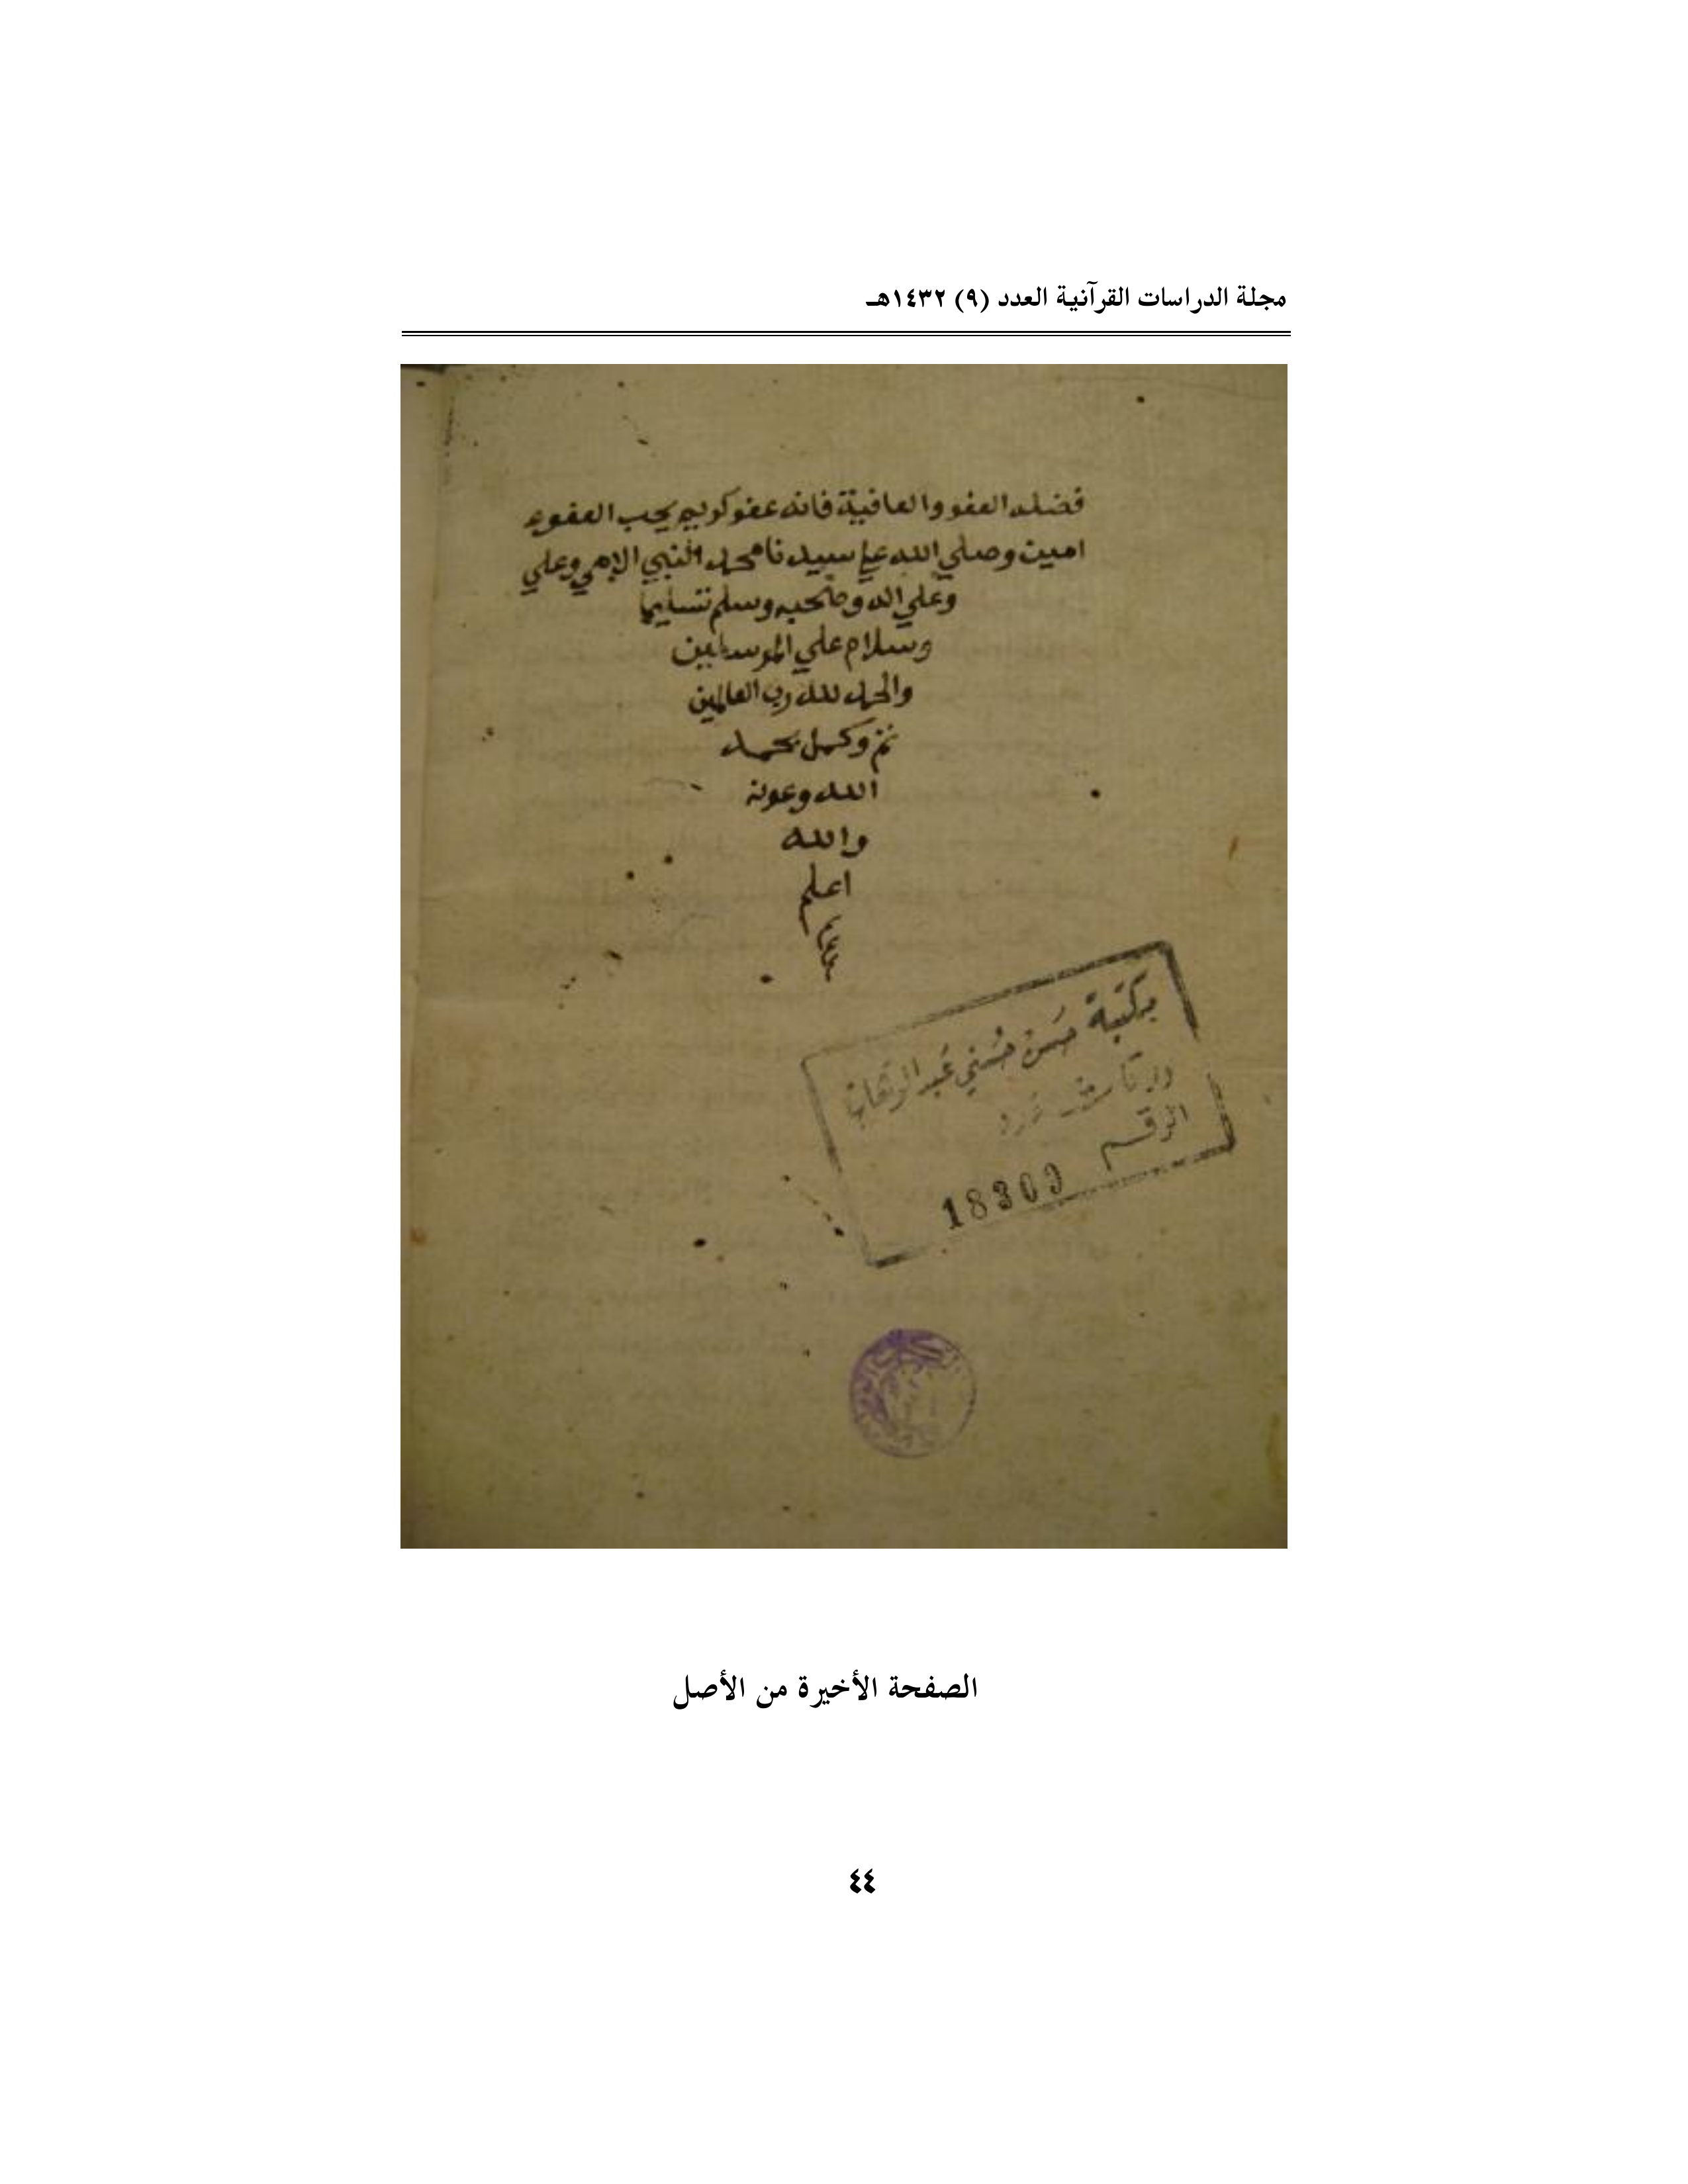 مجلة الدراسات القرآنية العدد (٩) ١٤٣٢هـ
فضله العفو والعافية فانه عفو كريم يحب العفو
امين وصلي الله علي سيدنا محمد النبي الامي وعلي
وعلي اله وصحبه وسلم تسليما
وسلام علي المرسلين
والحمد لله رب العالمين
تم وكمل بحمد
الله وعونه
والله
اعلم
مكتبة حسن حسني عبد الوهاب
الرقم
18309
الصفحة الأخيرة من الأصل
٤٤